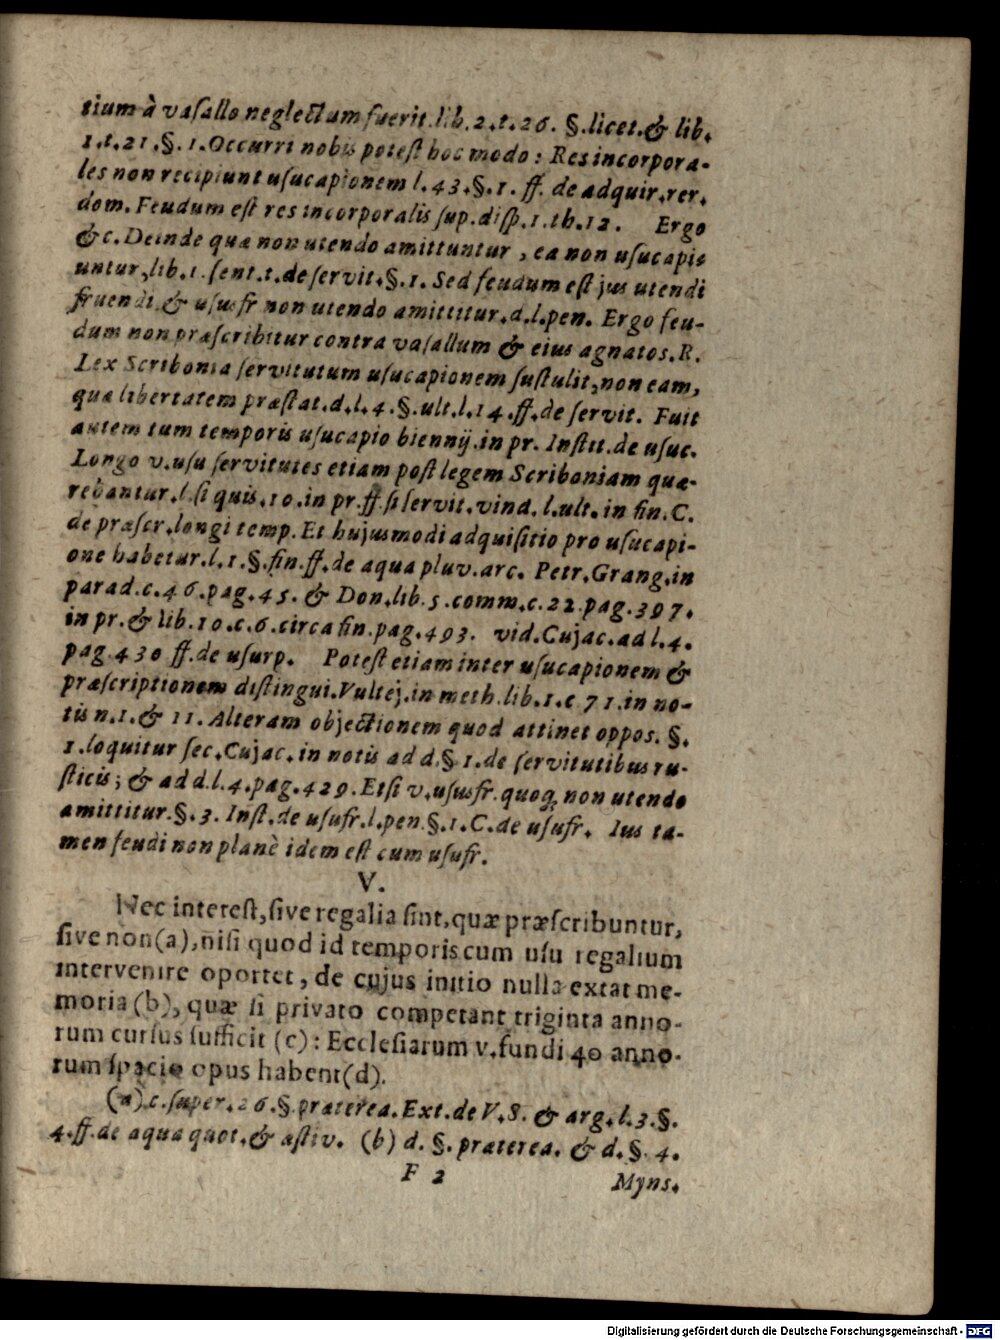 tium à vaſallo neglectum fuerit.lib.2.t.26. §.licet.& lib.
1.t.21.§.1.Occurri nobis poteſt hoc modo: Res incorpora-
les non recipiunt uſucapionem l.43.§.1. ff. de adquir.rer.
dom. Feudum eſt res incorporalis ſup.diſp.1.th.12. Ergo
&c. Deinde quæ non utendo amittuntur, ea non uſucapi-
untur,lib.1.ſent.t.de ſervit.§.1. Sed feudum eſt jus utendi
fruendi & uſusfr non utendo amittitur.d.l.pen. Ergo feu-
dum non præſcribitur contra vaſallum & eius agnatos.R.
Lex Scribonia ſervitutum uſucapionem ſuſtulit,non eam,
quæ libertatem præſtat.d.l.4.§.ult.l.14.ff.de ſervit. Fuit
autem tum temporis uſucapio biennij.in pr. Inſtit.de uſuc.
Longo v.uſu ſervitutes etiam poſt legem Scriboniam quæ-
rebantur.l.ſi quis.10.in pr.ff.ſi ſervit.vind. l.ult.in fin.C.
de præſcr.longi temp. Et hujusmodi adquiſitio pro uſucapi-
one habetur.l.1.§.fin.ff.de aqua pluv.arc. Petr.Grang.in
parad.c.46.pag.45. & Don.lib.5.comm.c.22.pag.397.
in pr.& lib.10.c.6.circa fin.pag.493. vid.Cujac.ad l.4.
pag.430 ff.de uſurp. Poteſt etiam inter uſucapionem &
præſcriptionem diſtingui.Vultej.in meth.lib.1.c 71.in no-
tis n.1.& 11. Alteram objectionem quod attinet oppos. §.
1.loquitur ſec.Cujac.in notis ad d.§ 1.de ſervitutibus ru-
ſticis; & ad d.l.4.pag.429. Etſi v.uſusfr.quoq; non utendo
amittitur.§.3. Inſt.de uſufr.l.pen.§.1.C.de uſufr. Ius ta-
men feudi non planè idem eſt cum uſufr.
V.
Nec intereſt,ſive regalia ſint,quæ præſcribuntur,
ſive non(a),niſi quod id temporis cum uſu regalium
intervenire oportet, de cujus initio nulla extat me-
moria(b), quæ ſi privato competant triginta anno-
rum curſus ſufficit (c): Eccleſiarum v.fundi 40 anno-
rum ſpacio opus habent(d).
(a) c.ſuper.26.§.præterea.Ext.de V.S. & arg.l.3.§.
4.ff.de aqua quot.& æſtiv. (b) d. §. præterea. & d.§. 4.
F 2 Myns.
Digitalisierung gefördert durch die Deutsche Forschungsgemeinschaft - DFG